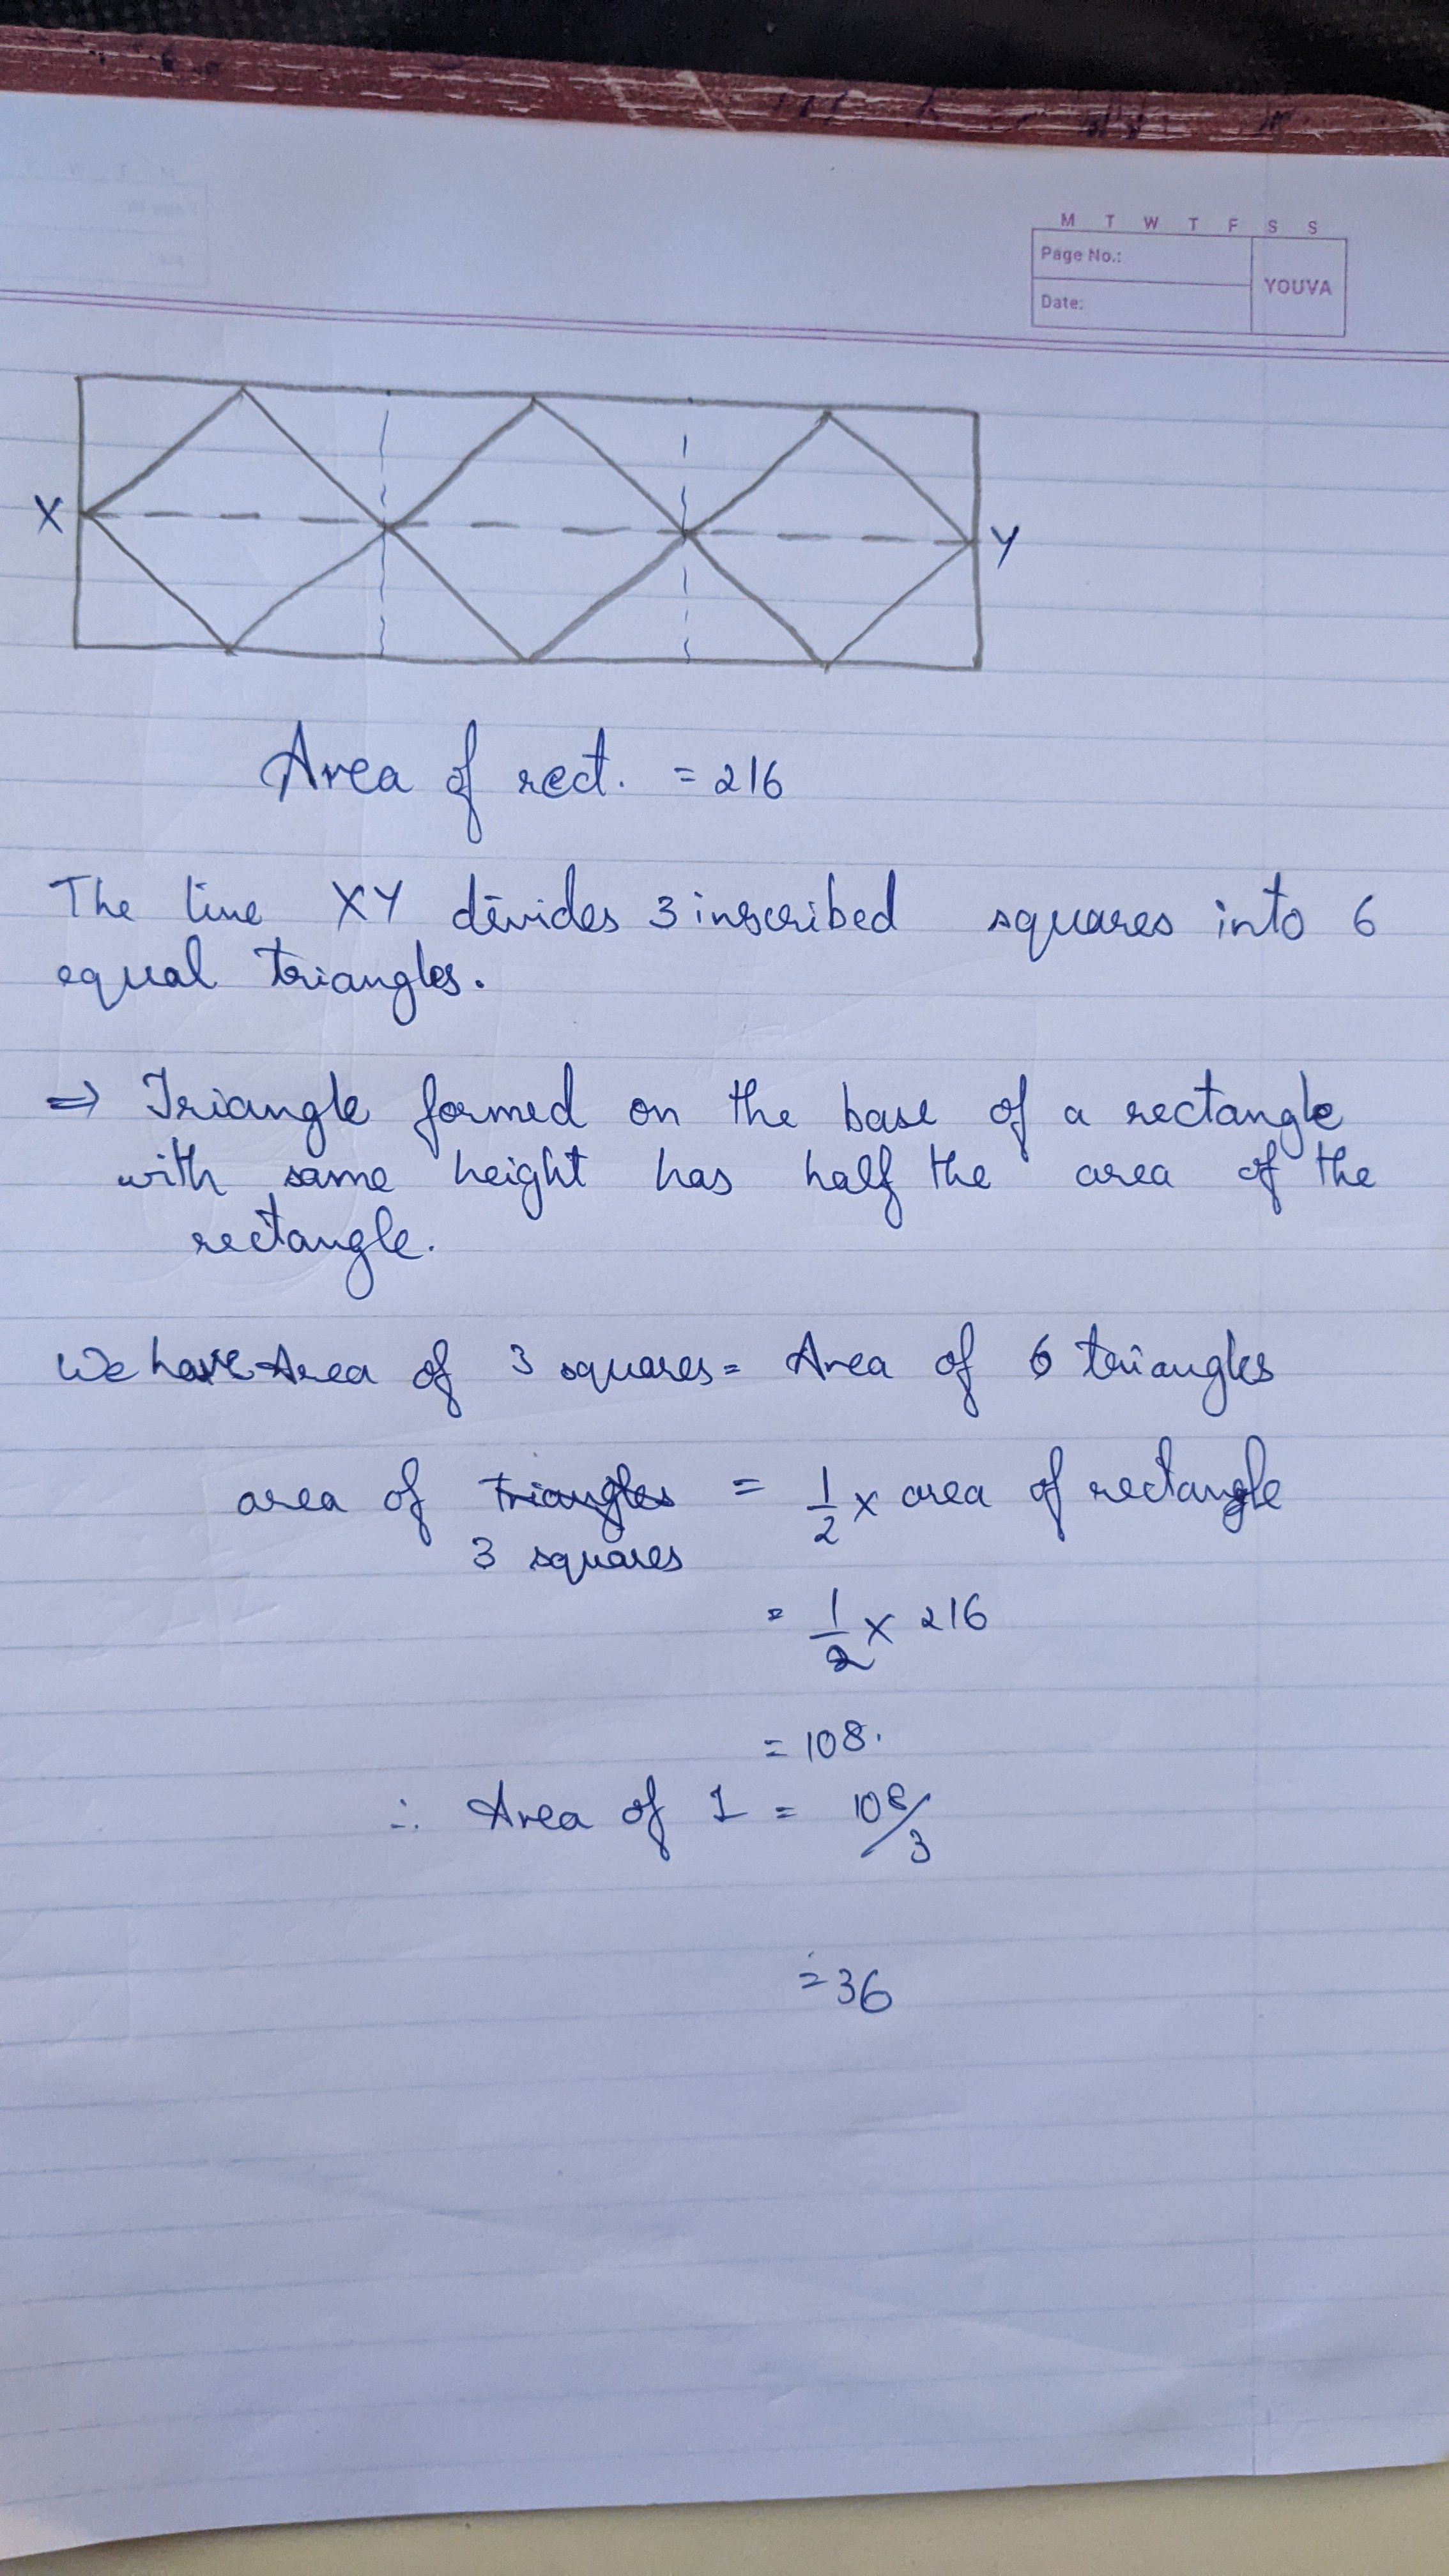 M T W T F S S
Page No.:
YOUVA
Date:
X
Y
Area of rect. = 216
The line XY divides 3 inscribed squares into 6
equal triangles.
⇒ Triangle formed on the base of a rectangle
with same height has half the area of the
rectangle.
We have Area of 3 squares = Area of 6 triangles
area of triangles = 1/2 × area of rectangle
3 squares
= 1/2 × 216
= 108.
∴ Area of 1 = 108/3
= 36